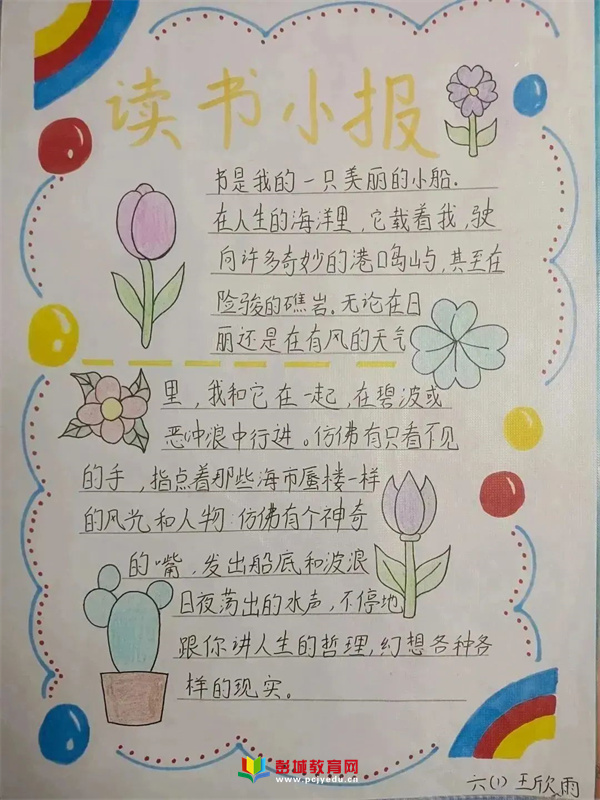 读书小报
书是我的一只美丽的小船.
在人生的海洋里,它载着我,驶
向许多奇妙的港口岛屿,甚至在
险骏的礁岩.无论在日
丽还是在有风的天气
里,我和它在一起,在碧波或
恶冲浪中行进。仿佛有只看不见
的手,指点着那些海市蜃楼一样
的风光和人物:仿佛有个神奇
的嘴,发出船底和波浪
日夜荡出的水声,不停地
跟你讲人生的哲理,幻想各种各
样的现实。
彭城教育网
www.pcjyedu.cn
六(1)王欣雨